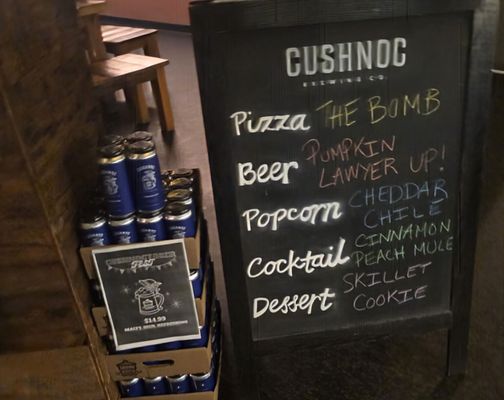 CUSHNOC
BREWING CO.
Pizza THE BOMB
Beer PUMPKIN
LAWYER UP!
Popcorn CHEDDAR
CHILÉ
Cocktail CINNAMON
PEACH MULE
Dessert SKILLET
COOKIE
FEST
$14.99